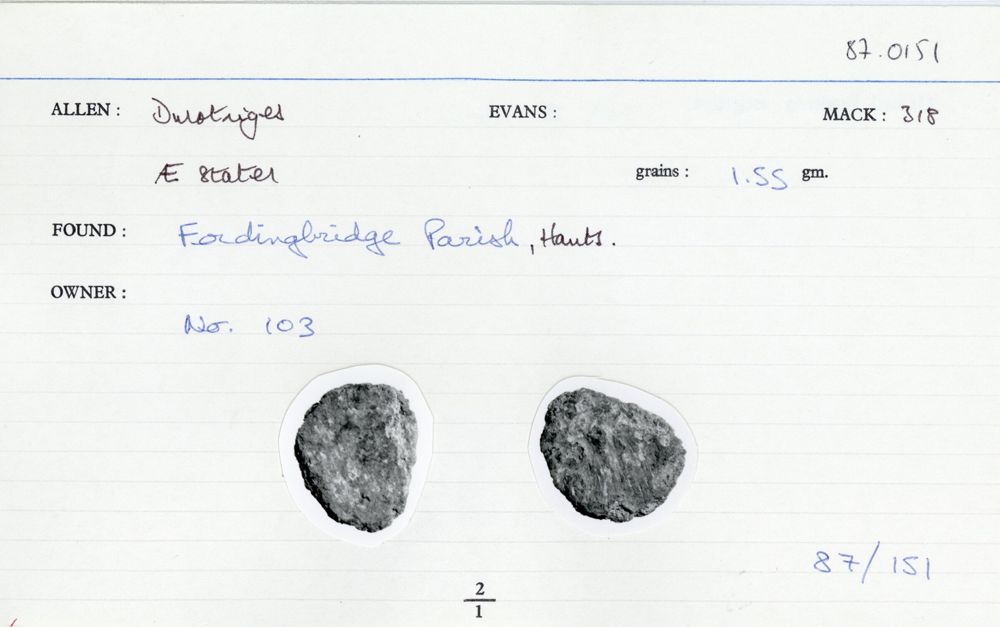 87.0151
ALLEN : Durotriges EVANS : MACK : 318
Æ stater grains : 1.55 gm.
FOUND : Fordingbridge Parish, Hants.
OWNER :
No. 103
87/151
2
1